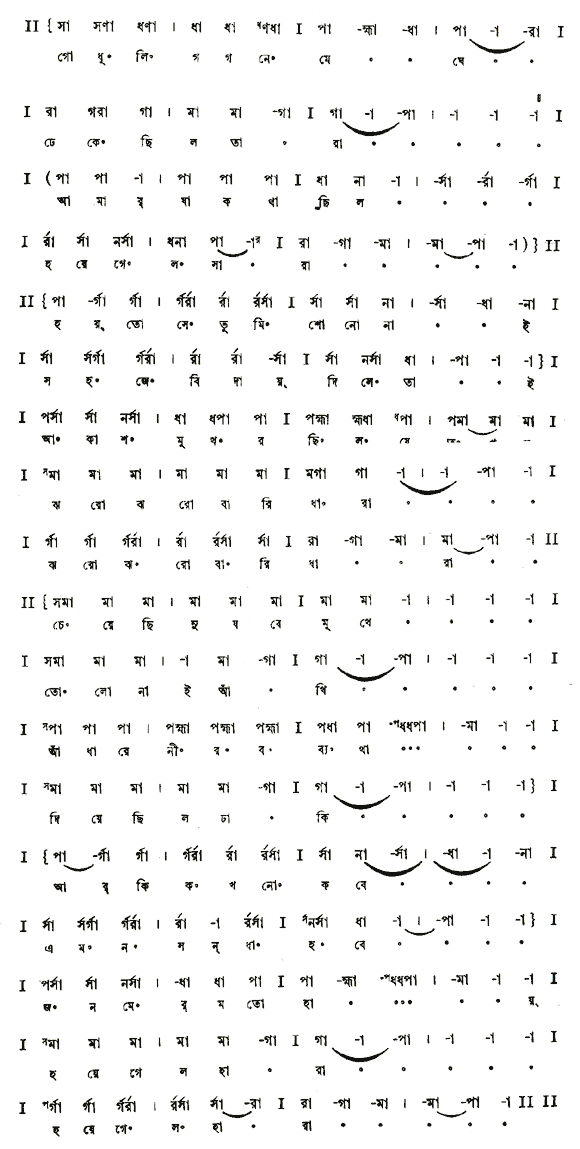 II {সা সণা ধণা । ধা ধা ণধা I পা -হ্মা -ধা । পা -া -রা I
গো ধূ॰ লি॰ গ গ নে॰ মে ॰ ॰ ঘে ॰ ॰
I রা গরা গা । মা মা -গা I গা -া -পা । -া -া -া I
ঢে কে॰ ছি ল তা ॰ রা ॰ ॰ ॰ ॰ ॰
I (পা পা -া । পা পা পা I ধা না -া । -র্সা -র্রা -র্গা I
আ মা র্ যা ক থা ছি ল ॰ ॰ ॰ ॰
I র্রা র্সা নর্সা । ধনা পা -া I রা -গা -মা । -মা -পা -া)} II
হ য়ে গে॰ ল॰ সা ॰ রা ॰ ॰ ॰ ॰ ॰
II {পা -র্গা র্গা । র্গর্রা র্রা র্রর্সা I র্সা র্সা না । -র্সা -ধা -না I
হ য়্ তো সে॰ তু মি॰ শো নো না ॰ ॰ ই
I র্সা র্সর্গা র্গর্রা । র্রা র্রা -র্সা I র্সা নর্সা ধা । -পা -া -া} I
স হ॰ জে॰ বি দা য়্ দি লে॰ তা ॰ ॰ ই
I পর্সা র্সা নর্সা । ধা ধপা পা I পহ্মা হ্মধা পা । পমা মা মা I
আ॰ কা শ॰ মু খ॰ র ছি॰ ল॰ যে
I মা মা মা । মা মা মা I মগা গা -া । -া -পা -া I
ঝ রো ঝ রো বা রি ধা॰ রা ॰ ॰ ॰ ॰
I র্গা র্গা র্গর্রা । র্রা র্রর্সা র্সা I রা -গা -মা । মা -পা -া II
ঝ রো ঝ॰ রো বা॰ রি ধা ॰ ॰ রা ॰ ॰
II {সমা মা মা । মা মা মা I মা মা -া । -া -া -া I
চে॰ য়ে ছি নু য বে মু খে ॰ ॰ ॰ ॰
I সমা মা মা । -া মা -গা I গা -া -পা । -া -া -া I
তো॰ লো না ই আঁ ॰ খি ॰ ॰ ॰ ॰ ॰
I পা পা পা । পহ্মা পহ্মা পহ্মা I পধা পা -ধধপা । -মা -া -া I
আঁ ধা রে নী॰ র॰ ব॰ ব্য॰ থা ॰॰॰ ॰ ॰ ॰
I মা মা মা । মা মা -গা I গা -া -পা । -া -া -া} I
দি য়ে ছি ল ঢা ॰ কি ॰ ॰ ॰ ॰ ॰
I {পা -র্গা র্গা । র্গর্রা র্রা র্রর্সা I র্সা না -র্সা । -ধা -া -না I
আ র্ কি ক॰ খ নো॰ ক বে ॰ ॰ ॰ ॰
I র্সা র্সর্গা র্গর্রা । র্রা -া র্রর্সা I নর্সা ধা -া । -পা -া -া} I
এ ম॰ ন॰ স ন্ ধা॰ হ॰ বে ॰ ॰ ॰ ॰
I পর্সা র্সা নর্সা । -ধা ধা পা I পা -হ্মা -ধধপা । -মা -া -া I
জ॰ ন মে॰ র্ ম তো হা ॰ ॰॰॰ ॰ ॰ য়্
I মা মা মা । মা মা -গা I গা -া -পা । -া -া -া I
হ য়ে গে ল হা ॰ রা ॰ ॰ ॰ ॰ ॰
I র্গা র্গা র্গর্রা । র্রর্সা র্সা -রা I রা -গা -মা । -মা -পা -া II II
হ য়ে গে॰ ল॰ হা ॰ রা ॰ ॰ ॰ ॰ ॰